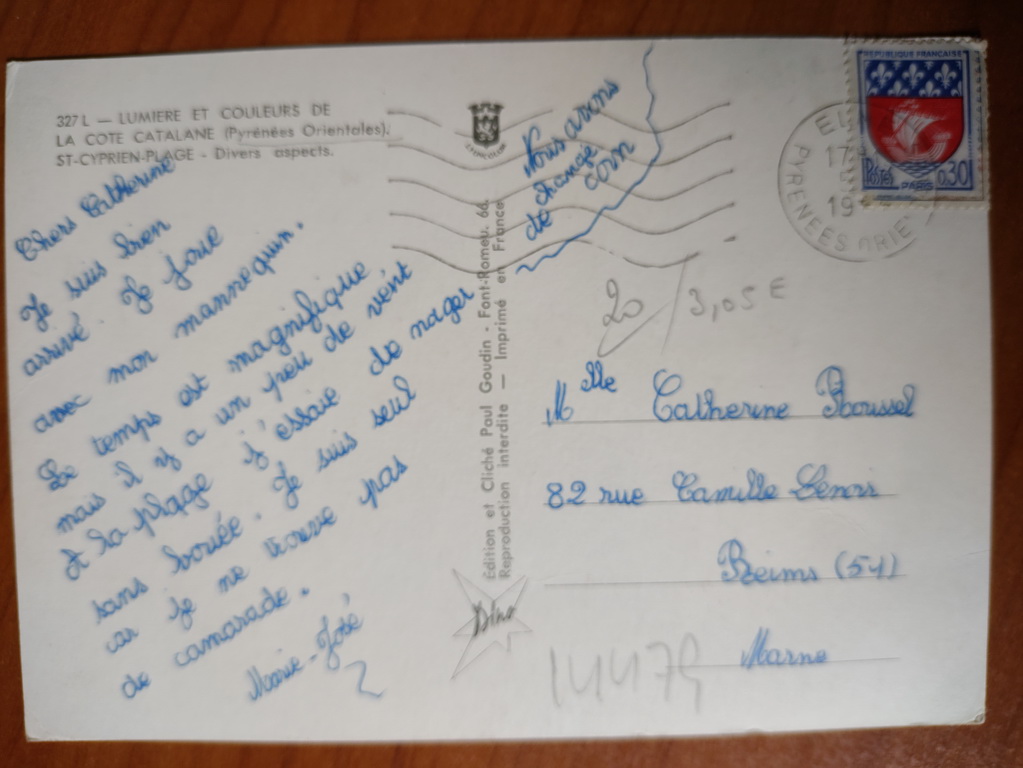 327 L — LUMIERE ET COULEURS DE
LA COTE CATALANE (Pyrénées Orientales).
ST-CYPRIEN-PLAGE - Divers aspects.
Chers Catherine
Je suis bien
arrivé. Je joue
avec mon mannequin.
Le temps est magnifique
mais il y a un peu de vent
A la plage j'essaie de nager
sans bouée. Je suis seul
car je ne trouve pas
de camarade.
Marie-José
Nous avons
de changé
coin
Édition et Cliché Paul Goudin - Font-Romeu. 66.
Reproduction interdite — Imprimé en France
Dino
REPUBLIQUE FRANÇAISE
POSTES PARIS 0,30
EL
17
19
PYRENEES ORIE
20 / 3,05 €
Mlle Catherine Roussel
82 rue Camille Lenoir
Reims (51)
Marne
14479